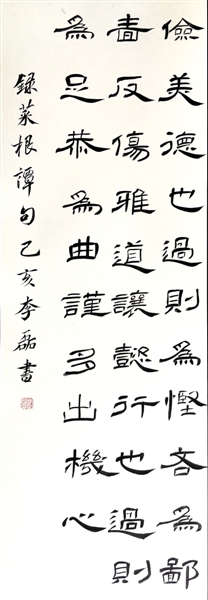 儉美德也過則為慳吝為鄙
嗇反傷雅道讓懿行也過則
為足恭為曲謹多出機心
錄菜根譚句乙亥李磊書